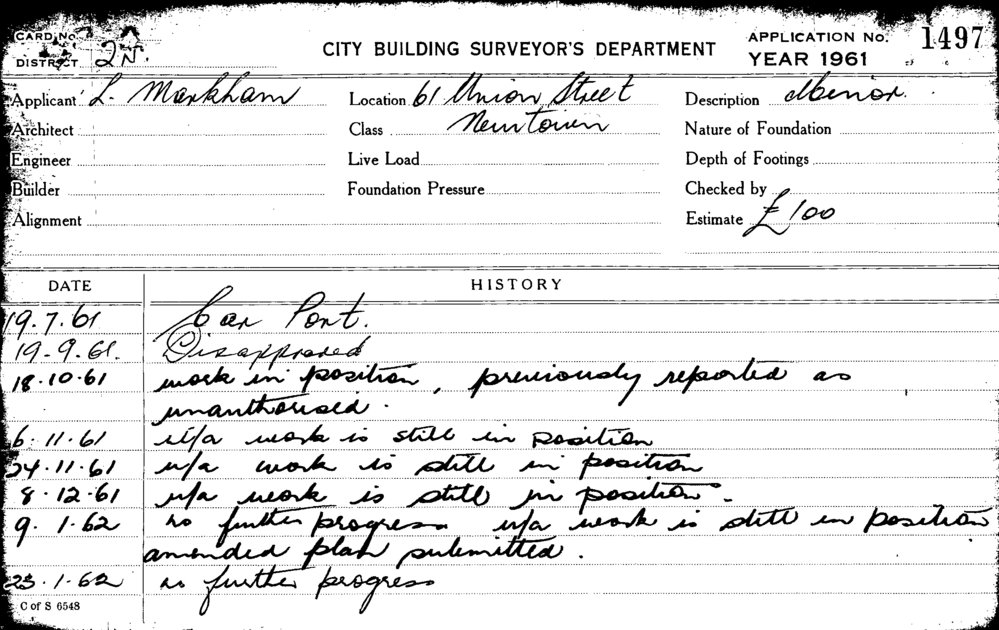 CARD No.
DISTRICT 2N.
CITY BUILDING SURVEYOR'S DEPARTMENT
APPLICATION No. 1497
YEAR 1961
Applicant L. Markham
Location 61 Union Street
Description Minor.
Architect
Class Newtown
Nature of Foundation
Engineer
Live Load
Depth of Footings
Builder
Foundation Pressure
Checked by
Alignment
Estimate £100
DATE
HISTORY
19.7.61 Car Port.
19-9.61. Disapproved
18.10.61 work in position, previously reported as
unauthorised.
6.11.61 u/a work is still in position
24.11.61 u/a work is still in position
8.12.61 u/a work is still in position.
9.1.62 no further progress u/a work is still in position
amended plan submitted.
23.1.62 no further progress
C of S 6548